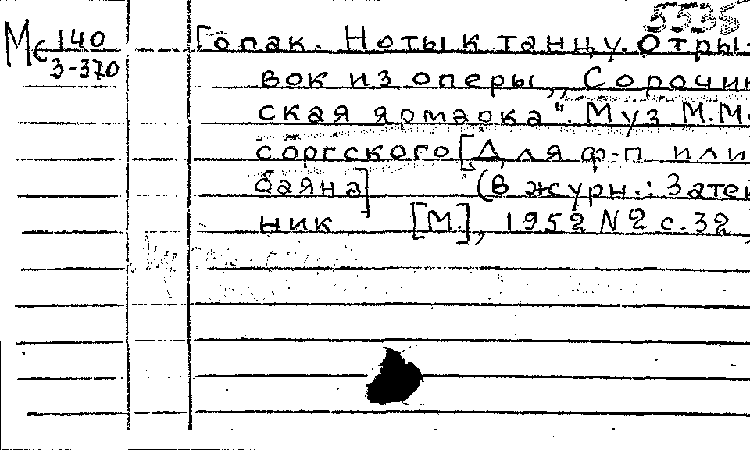 5535
Мс 140
3-370
Гопак. Ноты к танцу. Отры-
вок из оперы „Сорочин
ская ярмарка". Муз М.М.
соргского [Для ф-п или
баяна] (В журн.: Затей
ник [М.], 1952 N2 с.32,